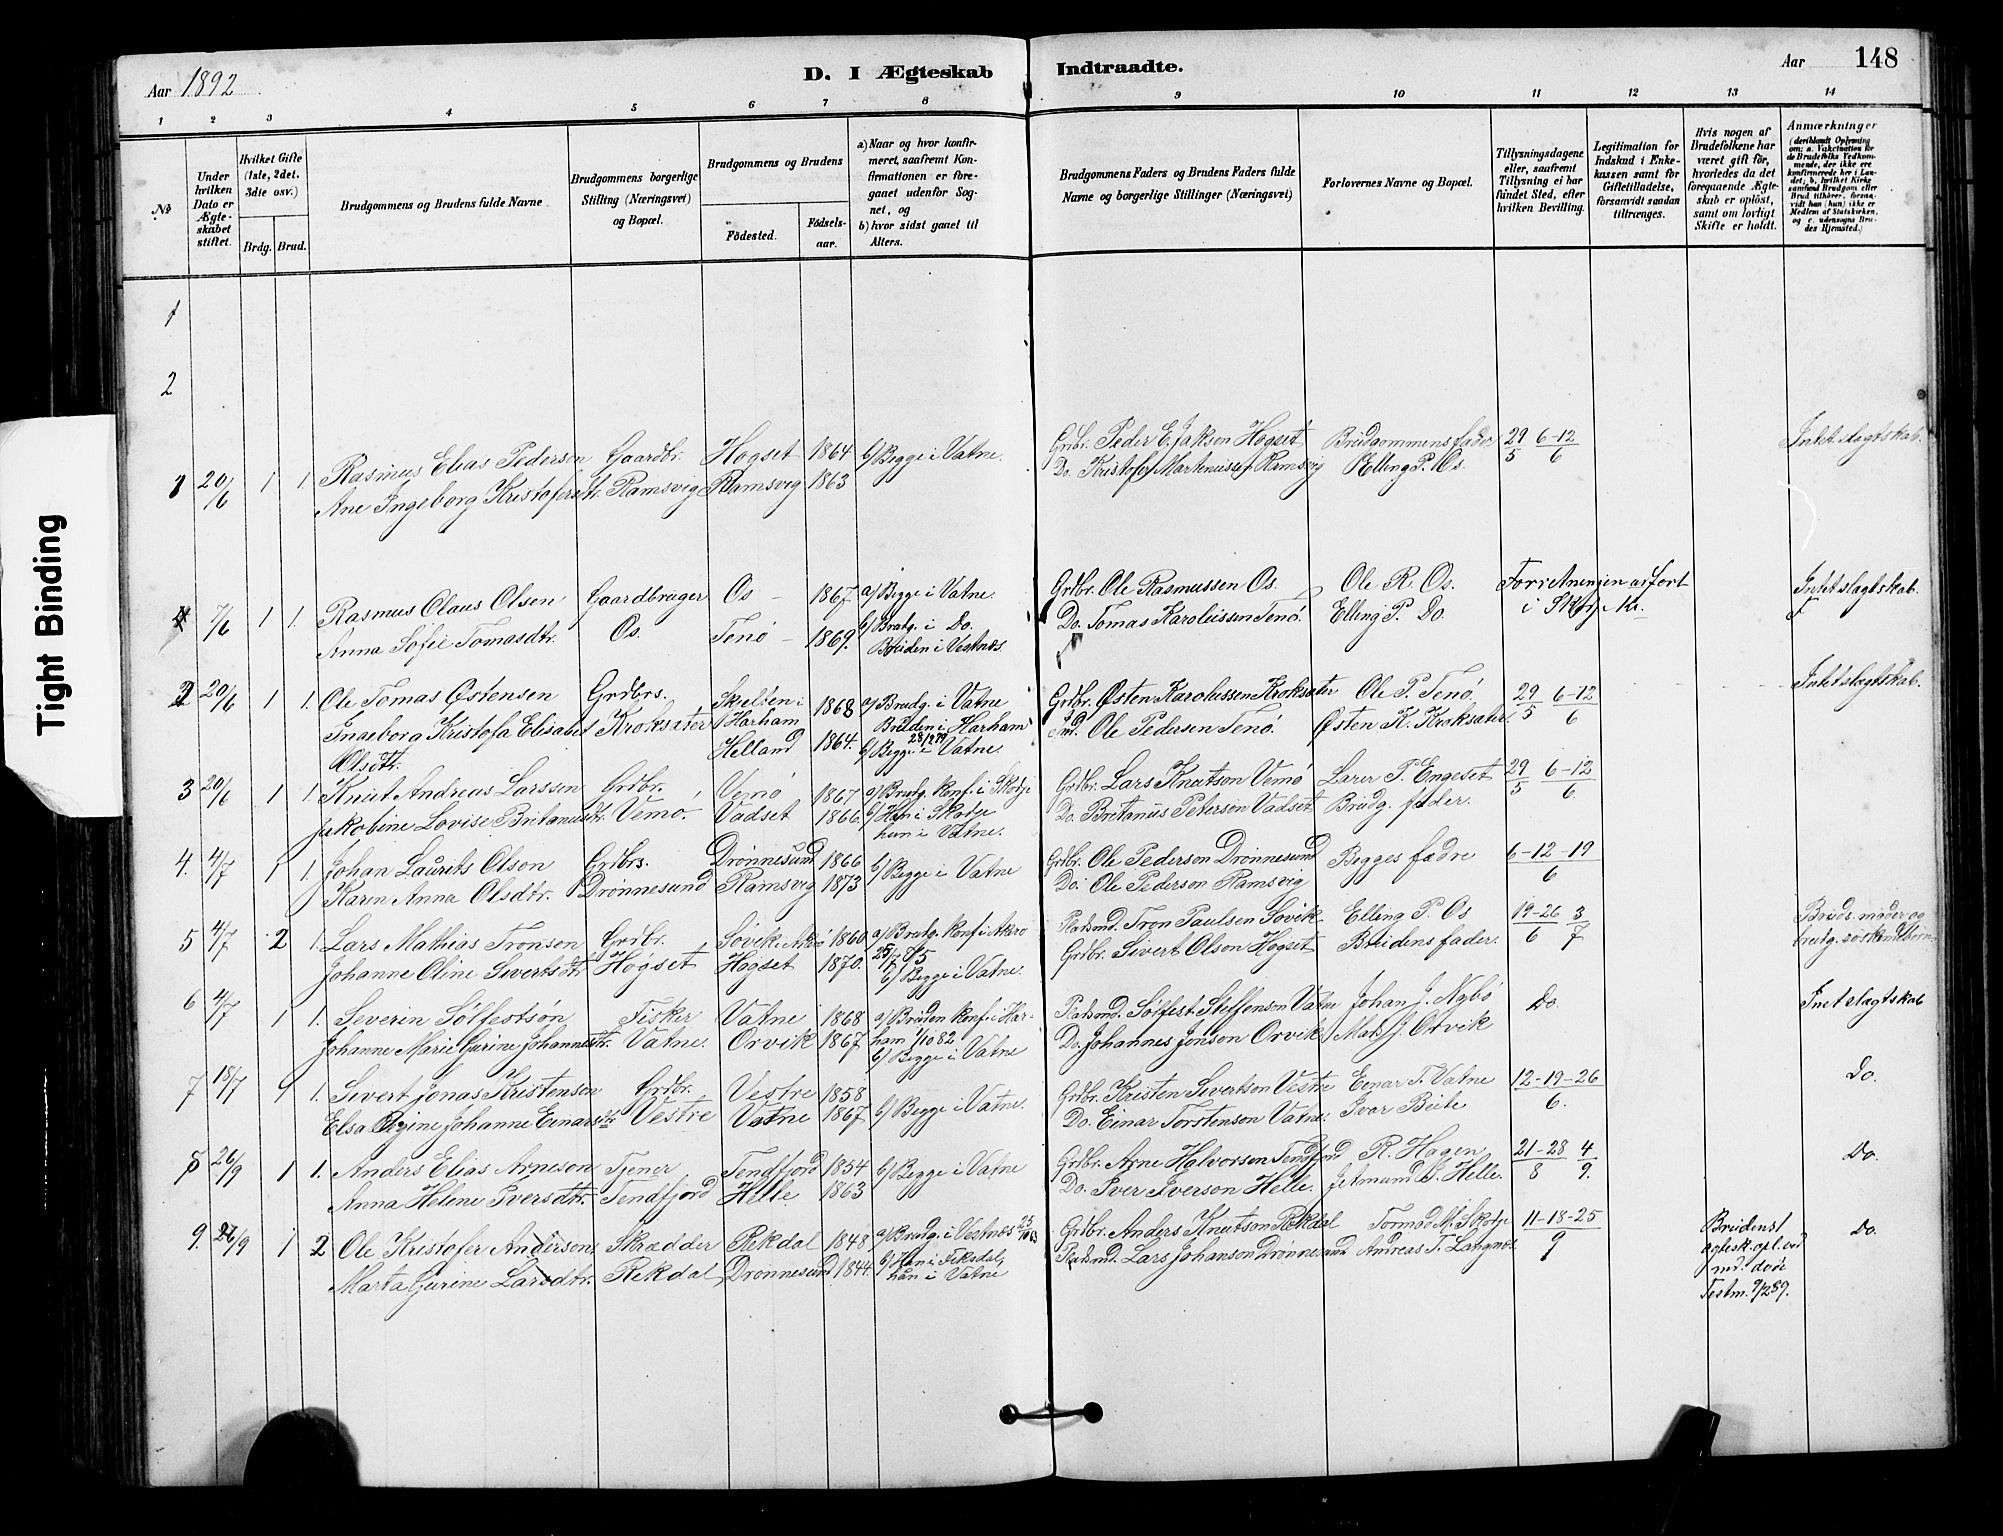 Tight Binding
Aar 1892
D. I Ægteskab Indtraadte.
Aar 148
1 2 3 4 5 6 7 8 9 10 11 12 13 14
No
Under hvilken Dato er Ægteskabet stiftet.
Hvilket Gifte (1ste, 2det, 3die osv.)
Brdg. Brud.
Brudgommens og Brudens fulde Navne.
Brudgommens borgerlige Stilling (Næringsvei) og Bopæl.
Brudgommens og Brudens
Födested.
Födsels-aar.
a) Naar og hvor konfirmeret, saafremt Konfirmationen er foregaaet udenfor Sognet, og
b) hvor sidst gaaet til Alters.
Brudgommens Faders og Brudens Faders fulde Navne og borgerlige Stillinger (Næringsvei)
Forlovernes Navne og Bopæl.
Tillysningsdagene eller, saafremt Tillysning ei har fundet Sted, efter hvilken Bevilling.
Legitimation for Indskud i Enkekassen samt for Giftetilladelse, forsaavidt saadan tiltrænges.
Hvis nogen af Brudefolkene har været gift før, hvorledes da det foregaaende Ægteskab er oplöst, samt om lovligt Skifte er holdt.
Anmærkninger
1
2
1 20/6 1 1. Rasmus Elias Pederson Gaardbr. Hogset 1864 b/ Begge i Vatne. Grdbr. Peder E. Jakson Hogset Brudgommens fader 29/5 6-12/6 Intet slagtskab.
Ane Ingeborg Kristofersdtr. Ramsvig Ramsvig 1863 Do. Kristofer Martinussen Ramsvig Elling P. Os.
7/6 1 1. Rasmus Claus Olsen Gaardbruger Os 1867 a/ Begge i Vatne. Grdbr. Ole Rasmussen Os. Ole R. Os. Intet slagtskab.
Anna Sofie Tomasdtr. Os. Tenø 1869. b/ Brudg. i Do. Do. Tomas Karolüssen Tenø. Elling P. Do. i
Bruden i Vestnæs.
2 20/6 1 1. Ole Tomas Østensen Grdbrs. Skelten i Harham 1868 a/ Brudg. i Vatne Grdbr. Østen Karolussen Kroksæter Ole P. Tenø. 29/5 6-12/6 Intet slagtskab.
Ingeborg Kristofa Elisabet Kroksæter Helland 1864. Bruden i Harham Ole Pedersen Tenø. Østen K. Kroksæter.
Olsdtr. b/ Begge i Vatne.
3 20/6 1 1. Knut Andreas Larssen Grdbr. Vemø 1867 a/ Brudg. konf. i Skodje Grdbr. Lars Knutson Vemø T. Engeset 29/5 6-12/6
Jakobine Lovise Britanusdtr. Vemø. Vadset 1866. b/ Han i Skodje Do. Bretanus Peterson Vadset Brudg. fader.
hun i Vatne.
4. 4/7 1 1. Johan Laurits Olson Grdbrs. Drønnesund 1866 b/ Begge i Vatne Grdbr. Ole Pederson Drønnesund Begges fædre 6-12-19/6
Karen Anna Olsdtr. Drønnesund Ramsvig 1873 Do. Ole Pederson Ramsvig
5 4/7 2 1. Lars Mathias Tronson Grdbr. Søvik i Akrø 1860 a/ Brudg. konf. i Akerø Pladsmd. Tron Paulsen Søvik Elling P. Os 19-26/6 3/7 Bruds. moder og
Johanne Oline Sivertsdtr Høgset Høgset 1870. 25/7 75 Grdbr. Sivert Olson Hogset Brudens fader. brudg. søskendebørn
b/ Begge i Vatne.
6 4/7 1 1. Severin Sølfestsøn Fisker Vatne 1868 a/ Bruden konf. i Har- Pladsmd. Sølfest Steffenson Vatne Johan J. Nybø Do Inet slagtskab
Johanne Marie Gurine Johannesdtr. Vatne. Orvik 1867 ham 1/10 82 Do. Johannes Jonson Orvik Mats J. Orvik
b/ Begge i Vatne
7 18/7 1 1. Sivert Jonas Kristenson Grdbr. Vestre 1858 b/ Begge i Vatne. Grdbr. Kristen Sivertson Vestre Einar T. Vatne 12-19-26/6. Do.
Elsa Regine Johanne Einarsdtr Vestre Vatne 1867 Do. Einar Torstenson Vatne. Ivar Beite
8 26/9 1 1. Anders Elias Arneson Tjener Tendfjord 1854 b/ Begge i Vatne Grdbr. Arne Halvorson Tendfjord R. Hagen 21-28/8 4/9. Do.
Anna Helene Iversdtr. Tendfjord Helle 1863 Do. Iver Iverson Helle. Jetmund I. Helle.
9. 26/9 1 2 Ole Kristofer Anderson Skrædder Rekdal 1848 a/ Brudg. i Vestnæs Grdbr. Anders Knutson Rekdal Tormod M. Skodje 11-18-25/9 Brudens 1 Do.
Marta Gurine Larsdtr. Rekdal Drønnesund 1844. b/ Han i Fiksdal, Pladsmd. Lars Johanson Drønnesund Andreas T. Langnes ægtesk. opl. ved
hun i Vatne md. død